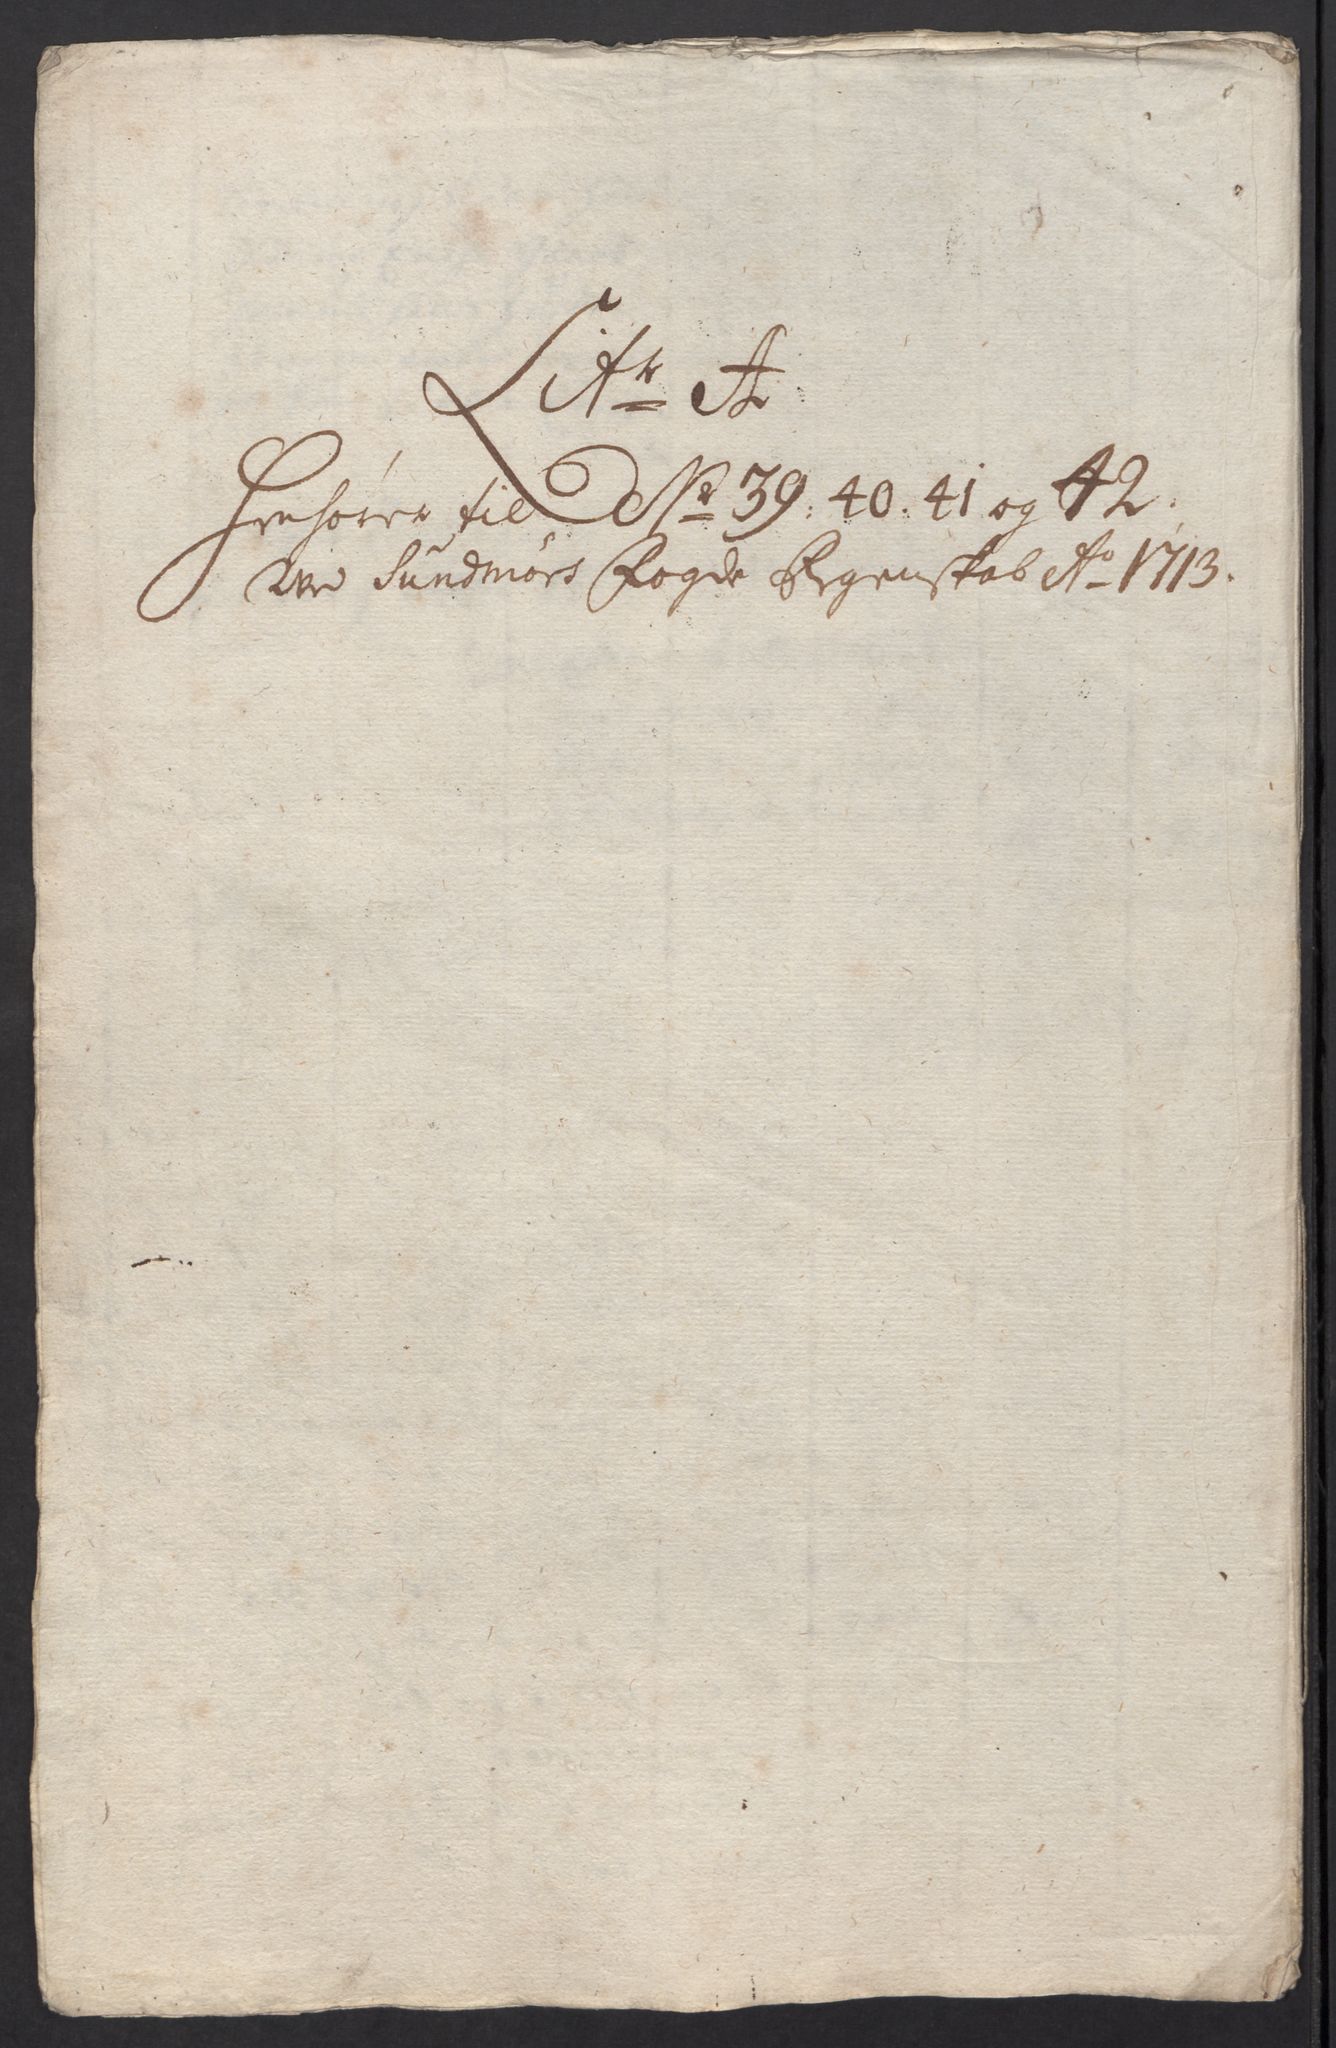 Litr A
Henhører til No 39. 40. 41 og 42.
Ved Sundmørs Fogde Regenskab Ao 1713.